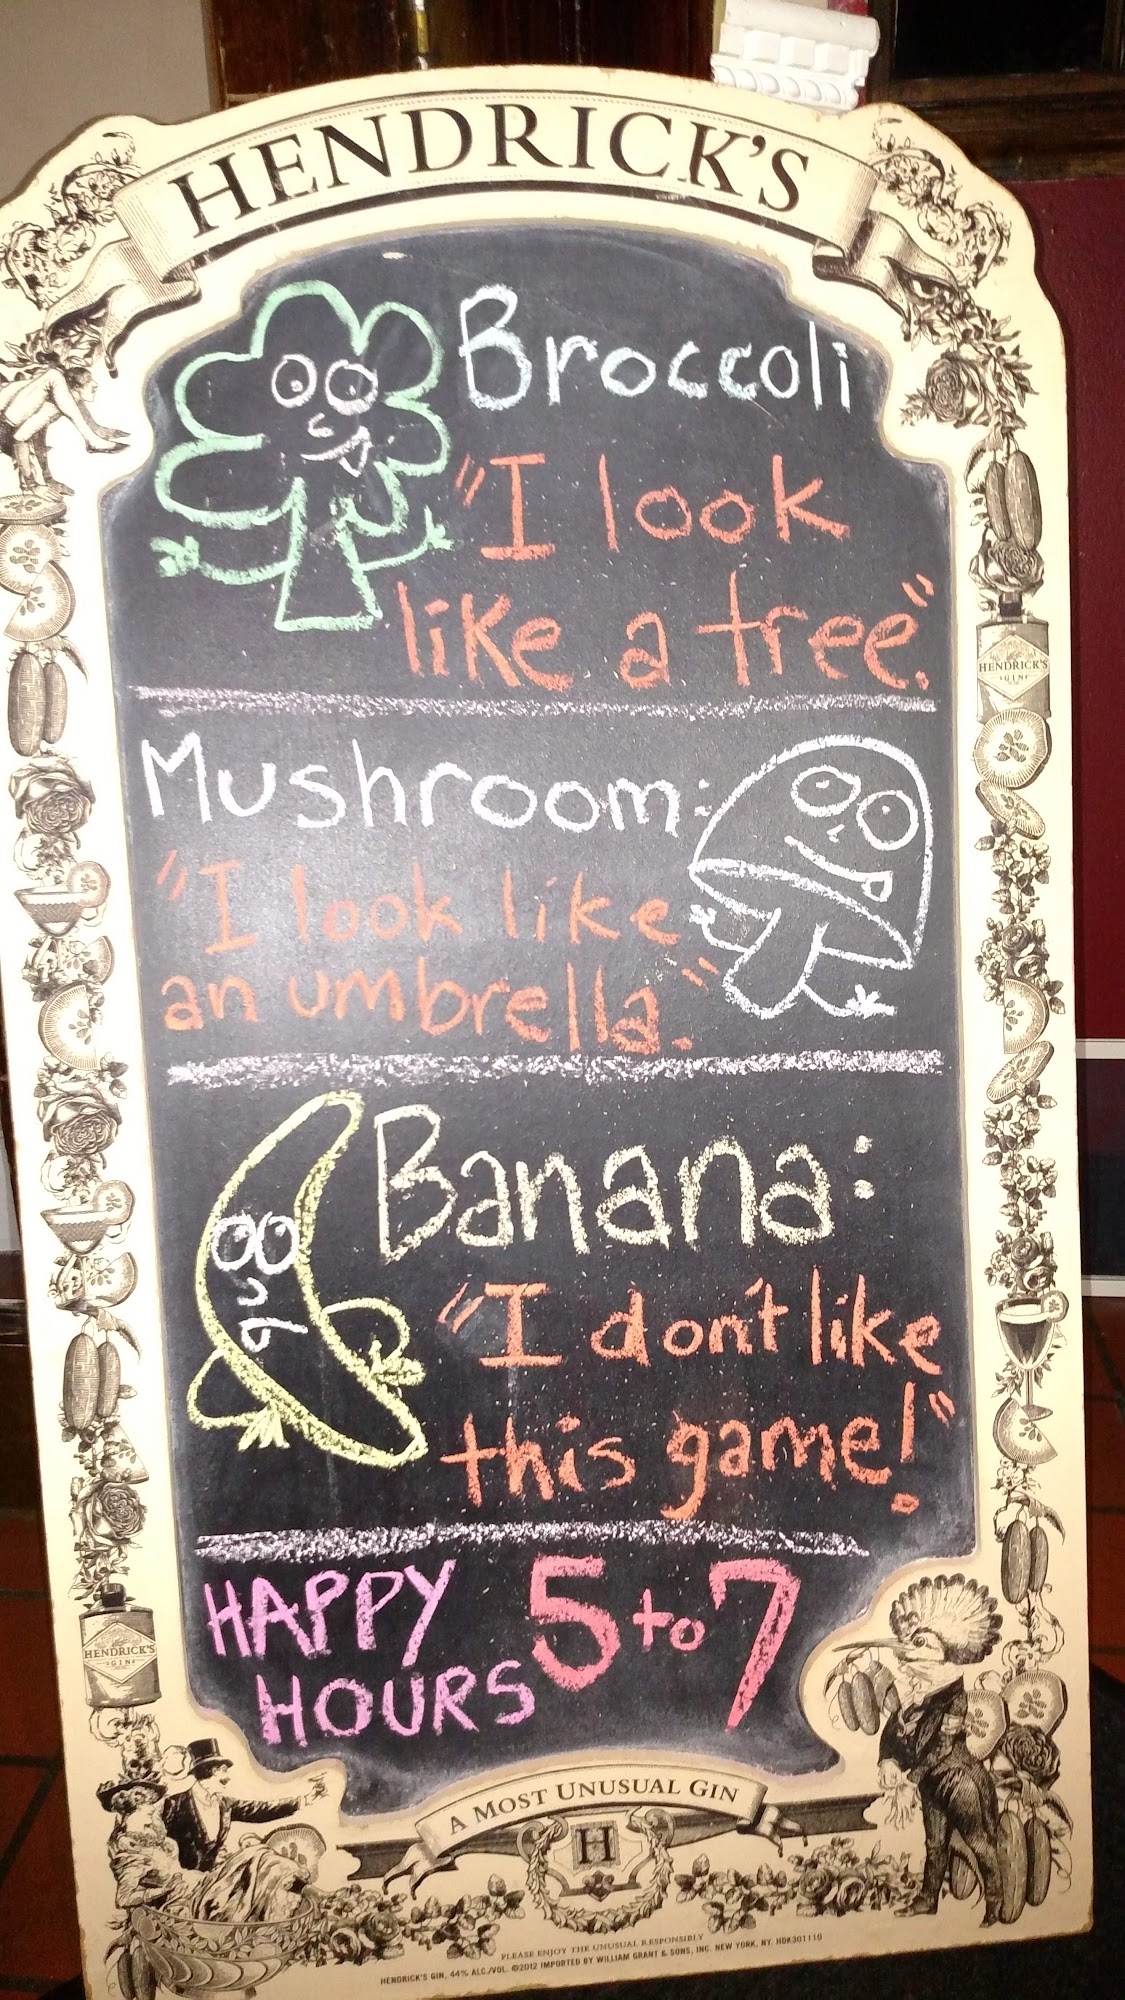 HENDRICK'S
Broccoli
"I look
like a tree".
Mushroom:
"I look like
an umbrella."
Banana:
"I don't like
this game!"
HAPPY 5 to 7
HOURS
HENDRICK'S
GIN
HENDRICK'S
GIN
A MOST UNUSUAL GIN
H
PLEASE ENJOY THE UNUSUAL RESPONSIBLY
HENDRICK'S GIN, 44% ALC./VOL. ©2012 IMPORTED BY WILLIAM GRANT & SONS, INC. NEW YORK, NY. HDK301110